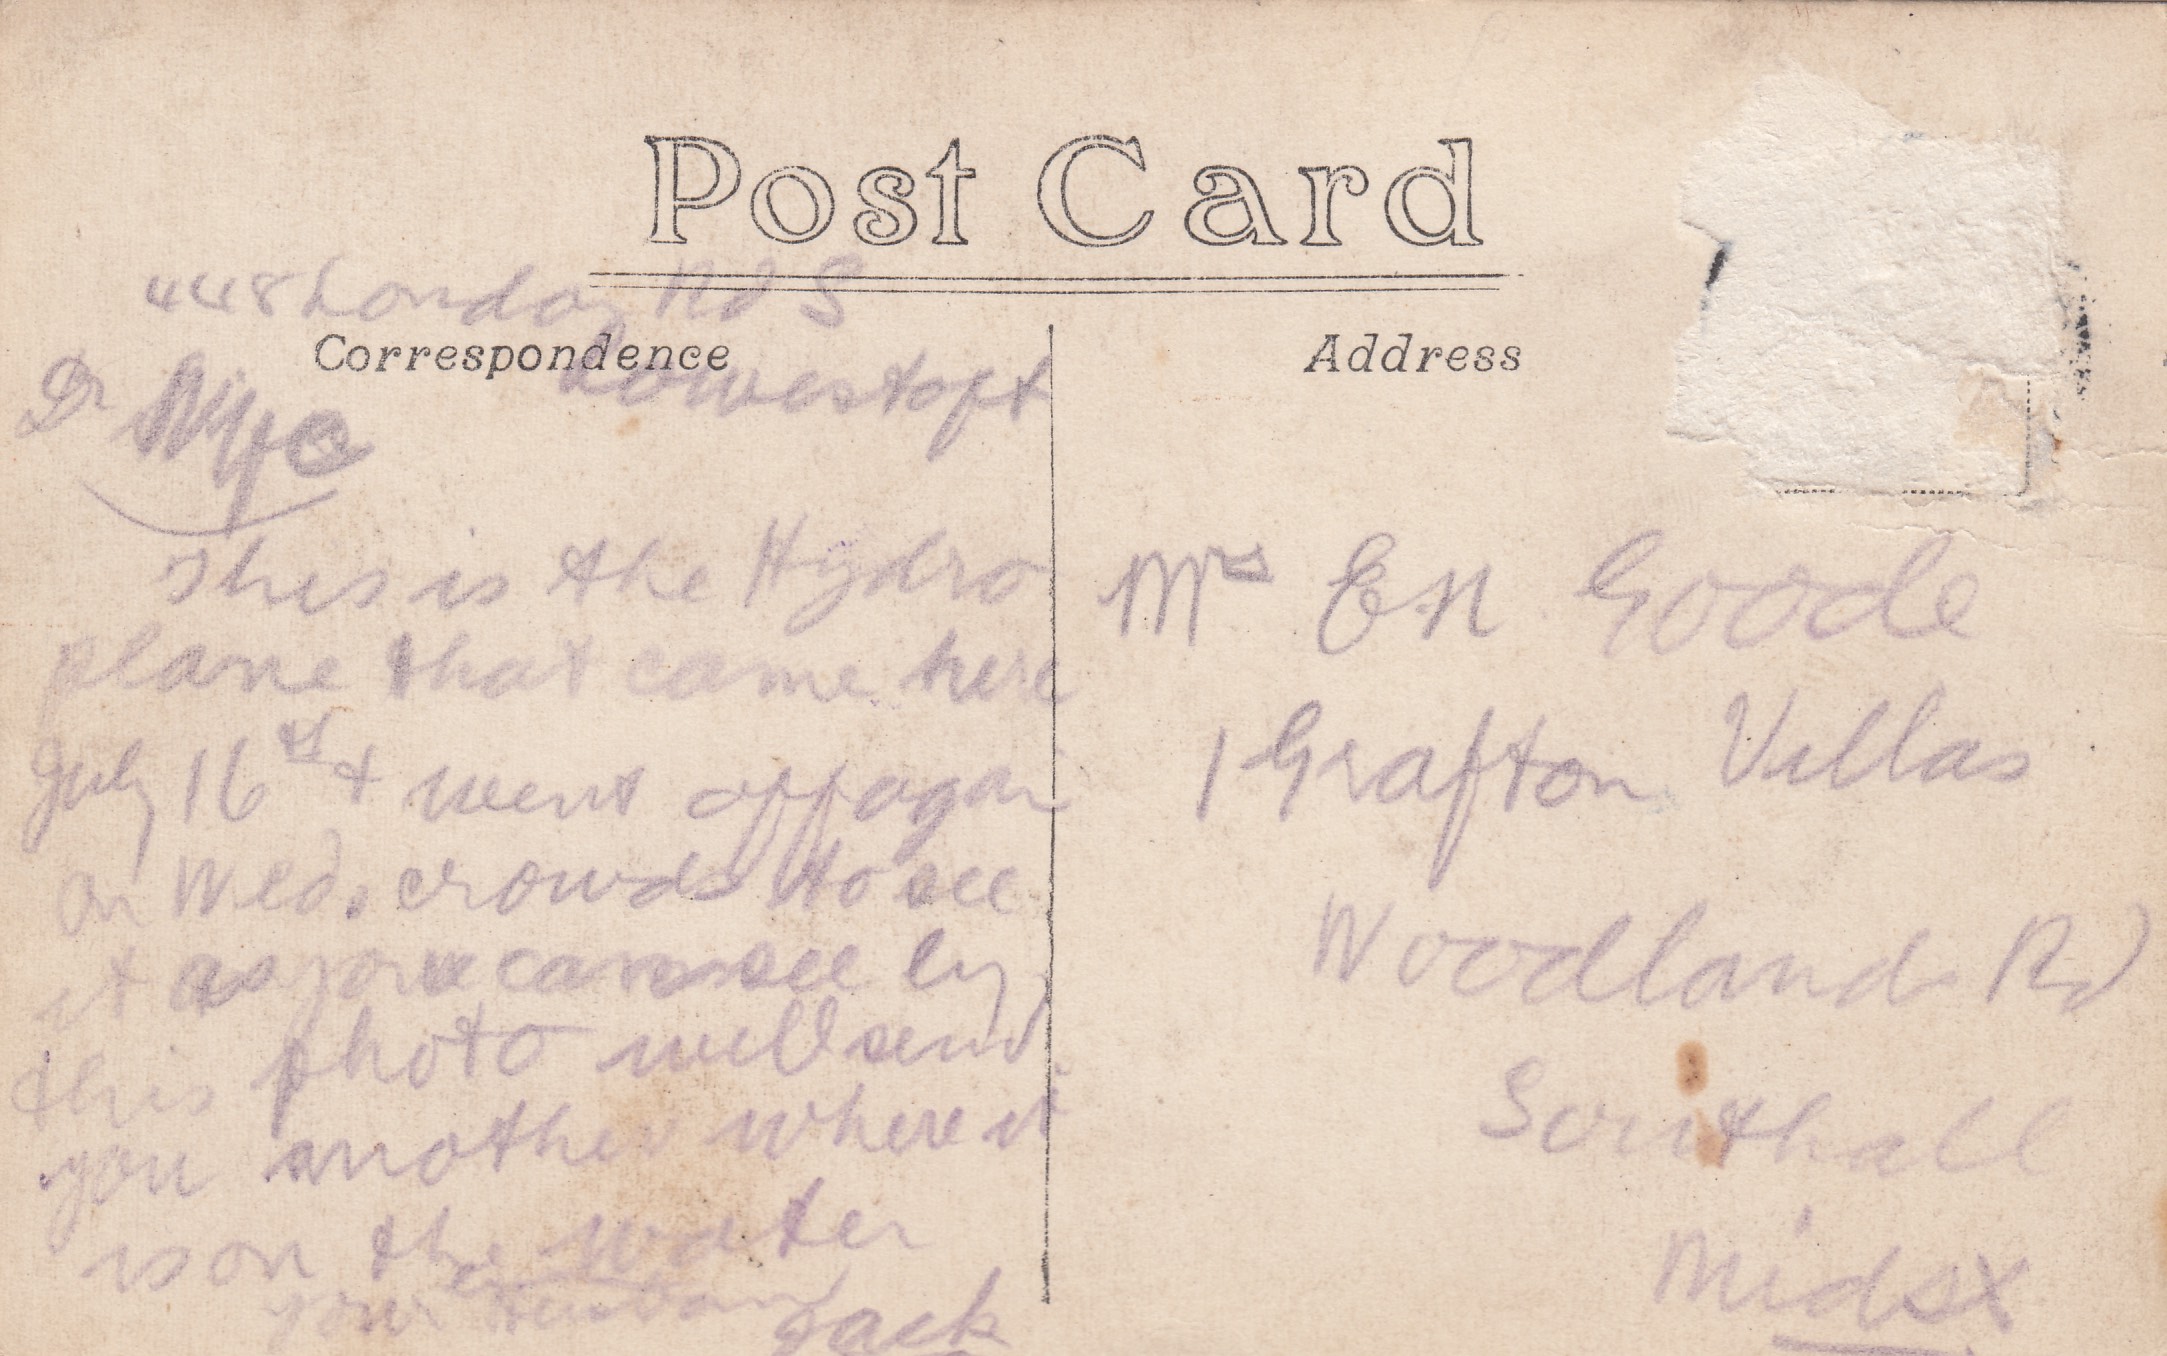 Post Card
448 London Rd S
Correspondence
Address
Lowestoft
Dr Wife
This is the Hydro
plane that came here
July 16th & went off again
on Wed, crowds to see
it as you can see by
this photo will send
you another where it
is on the water
your husband
Jack
Mrs E N Goode
1 Grafton Villas
Woodland Rd
Southall
Midsx